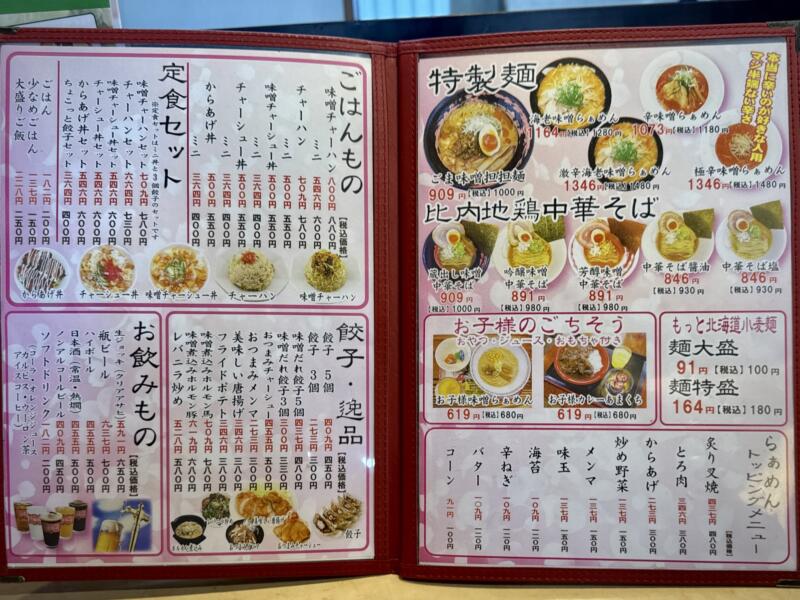 ごはんもの
【税込価格】
味噌チャーハン 八〇〇円 八八〇円
ミニ 五四六円 六〇〇円
チャーハン 七〇九円 七八〇円
ミニ 四五五円 五〇〇円
味噌チャーシュー丼 五〇〇円 五五〇円
チャーシュー丼 五〇〇円 五五〇円
ミニ 三六四円 四〇〇円
からあげ丼 五〇〇円 五五〇円
ミニ 三六四円 四〇〇円
定食セット
※定食セットはミニ丼と3個餃子のセットです
味噌チャーハンセット 七〇九円 七八〇円
チャーハンセット 六六四円 七三〇円
味噌チャーシュー丼セット 五四六円 六〇〇円
チャーシュー丼セット 五四六円 六〇〇円
からあげ丼セット 五四六円 六〇〇円
ちょこっと餃子セット 三六四円 四〇〇円
ごはん 一八二円 二〇〇円
少なめごはん 一三七円 一五〇円
大盛りご飯 二二八円 二五〇円
からあげ丼
チャーシュー丼
味噌チャーシュー丼
チャーハン
味噌チャーハン
餃子・逸品
【税込価格】
餃子 5個 四〇九円 四五〇円
餃子 3個 二七三円 三〇〇円
味噌だれ餃子5個
味噌だれ餃子3個
おつまみチャーシュー
おつまみメンマ
美味しい唐揚げ
フライドポテト
味噌煮込みホルモン 馬
味噌煮込みホルモン 豚
レバニラ炒め
餃子
おつまみチャーシュー
お飲みもの
【税込価格】
生ジョッキ(クリアアサヒ) 五九一円 六五〇円
瓶ビール 六三七円 七〇〇円
ハイボール 四五五円 五〇〇円
日本酒(常温・熱燗) 四五五円 五〇〇円
ノンアルコールビール 四〇九円 四五〇円
ソフトドリンク 一八二円 二〇〇円
特製麺
本当に辛いのが好きな人用
マジ半端ない辛さ
海老味噌らぁめん
1164円【税込】1280円
辛味噌らぁめん
1073円【税込】1180円
ごま味噌担担麺
909円【税込】1000円
激辛海老味噌らぁめん
1346円【税込】1480円
極辛味噌らぁめん
1346円【税込】1480円
比内地鶏中華そば
蔵出し味噌
中華そば
909円
【税込】1000円
吟醸味噌
中華そば
891円
【税込】980円
芳醇味噌
中華そば
891円
【税込】980円
中華そば醤油
846円
【税込】930円
中華そば塩
846円
【税込】930円
お子様のごちそう
おやつ・ジュース・おもちゃ付き
お子様味噌らぁめん
619円【税込】680円
お子様カレーあまくち
619円【税込】680円
もっと北海道小麦麺
麺大盛
91円【税込】100円
麺特盛
164円【税込】180円
らぁめん
トッピングメニュー
【税込価格】
炙り叉焼 四三七円 四八〇円
とろ肉 三四六円 三八〇円
からあげ 二七三円 三〇〇円
炒め野菜 一三七円 一五〇円
メンマ 一三七円 一五〇円
味玉 一三七円 一五〇円
海苔 一〇九円 一二〇円
辛ねぎ 一〇九円 一二〇円
バター 一〇九円 一二〇円
コーン 九一円 一〇〇円